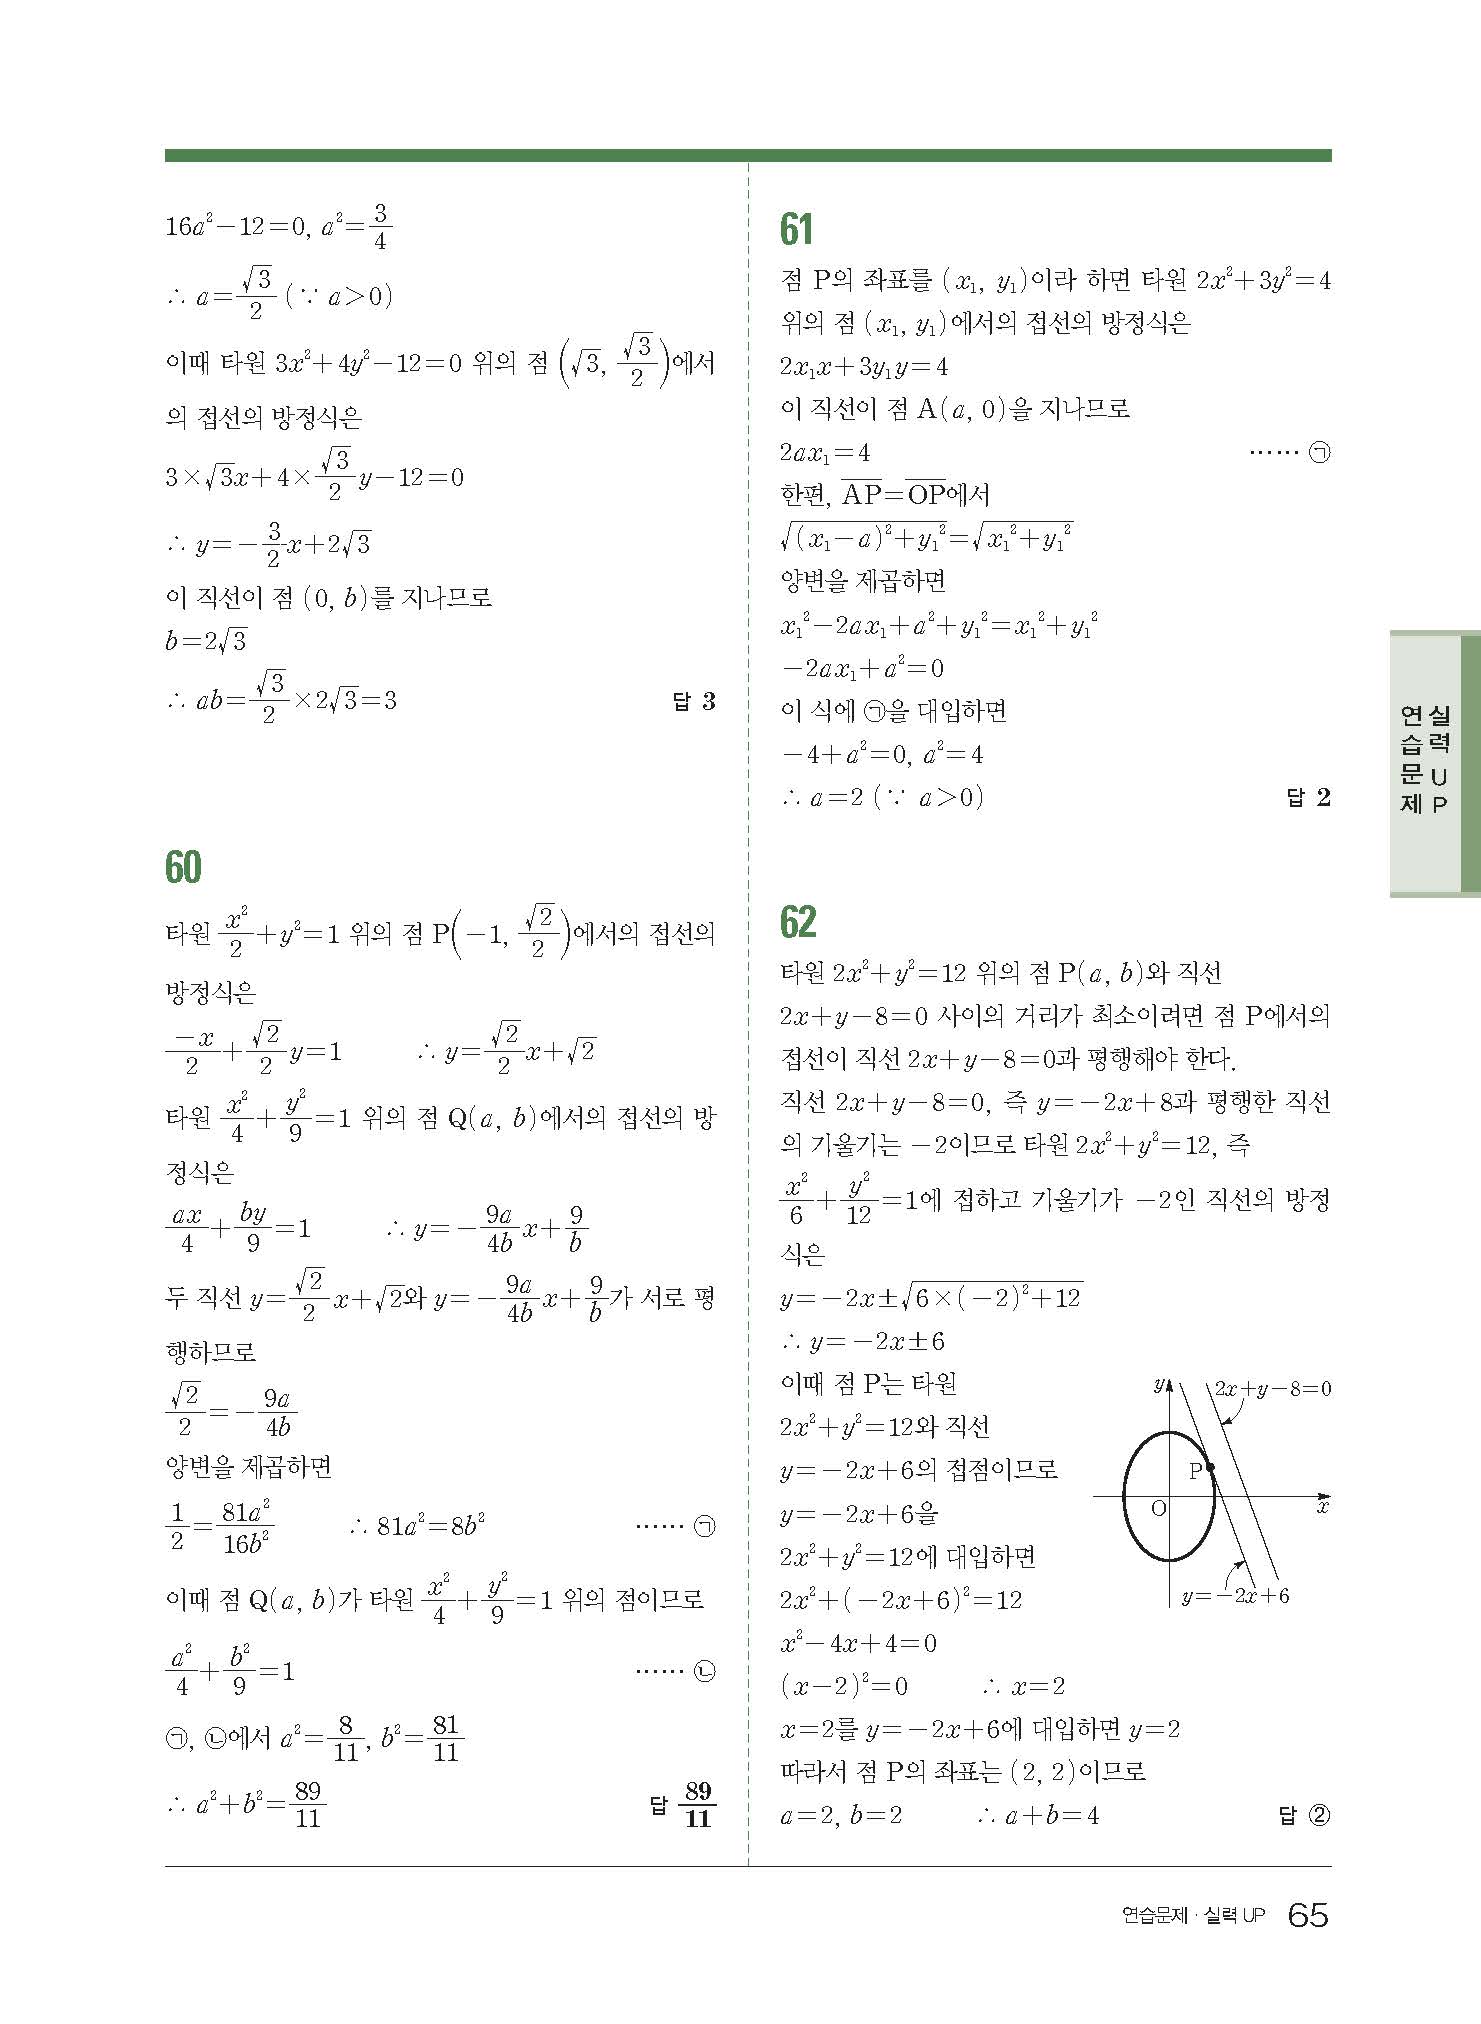 16a²-12=0, a²=3/4
∴ a=√3/2 (∵ a>0)
이때 타원 3x²+4y²-12=0 위의 점 (√3, √3/2)에서
의 접선의 방정식은
3×√3x+4×√3/2 y-12=0
∴ y=-3/2 x+2√3
이 직선이 점 (0, b)를 지나므로
b=2√3
∴ ab=√3/2×2√3=3 답 3
60
타원 x²/2+y²=1 위의 점 P(-1, √2/2)에서의 접선의
방정식은
-x/2+√2/2 y=1 ∴ y=√2/2 x+√2
타원 x²/4+y²/9=1 위의 점 Q(a, b)에서의 접선의 방
정식은
ax/4+by/9=1 ∴ y=-9a/4b x+9/b
두 직선 y=√2/2 x+√2와 y=-9a/4b x+9/b가 서로 평
행하므로
√2/2=-9a/4b
양변을 제곱하면
1/2=81a²/16b² ∴ 81a²=8b² …… ㉠
이때 점 Q(a, b)가 타원 x²/4+y²/9=1 위의 점이므로
a²/4+b²/9=1 …… ㉡
㉠, ㉡에서 a²=8/11, b²=81/11
∴ a²+b²=89/11 답 89/11
61
점 P의 좌표를 (x₁, y₁)이라 하면 타원 2x²+3y²=4
위의 점 (x₁, y₁)에서의 접선의 방정식은
2x₁x+3y₁y=4
이 직선이 점 A(a, 0)을 지나므로
2ax₁=4 …… ㉠
한편, A̅P̅=O̅P̅에서
√((x₁-a)²+y₁²)=√(x₁²+y₁²)
양변을 제곱하면
x₁²-2ax₁+a²+y₁²=x₁²+y₁²
-2ax₁+a²=0
이 식에 ㉠을 대입하면
-4+a²=0, a²=4
∴ a=2 (∵ a>0) 답 2
62
타원 2x²+y²=12 위의 점 P(a, b)와 직선
2x+y-8=0 사이의 거리가 최소이려면 점 P에서의
접선이 직선 2x+y-8=0과 평행해야 한다.
직선 2x+y-8=0, 즉 y=-2x+8과 평행한 직선
의 기울기는 -2이므로 타원 2x²+y²=12, 즉
x²/6+y²/12=1에 접하고 기울기가 -2인 직선의 방정
식은
y=-2x±√(6×(-2)²+12)
∴ y=-2x±6
이때 점 P는 타원
2x²+y²=12와 직선
y=-2x+6의 접점이므로
y=-2x+6을
2x²+y²=12에 대입하면
2x²+(-2x+6)²=12
x²-4x+4=0
(x-2)²=0 ∴ x=2
x=2를 y=-2x+6에 대입하면 y=2
따라서 점 P의 좌표는 (2, 2)이므로
a=2, b=2 ∴ a+b=4 답 ②
y
2x+y-8=0
P
O
x
y=-2x+6
연습문제
실력UP
연습문제·실력 UP 65